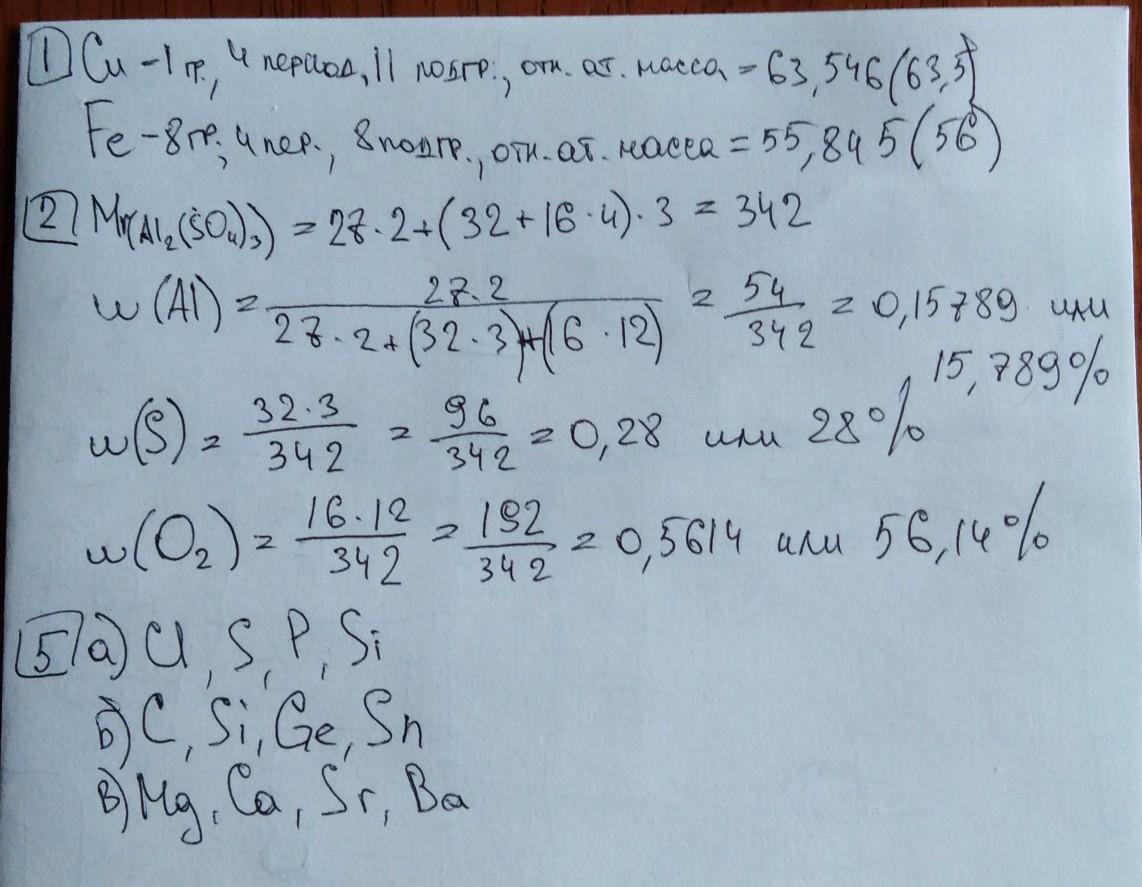 1 Cu – 1 гр., 4 период, 11 подгр., отн. ат. масса = 63,546 (63,5)
Fe – 8 гр., 4 пер., 8 подгр., отн. ат. масса = 55,845 (56)
2 Mr(Al₂(SO₄)₃) = 27·2+(32+16·4)·3 = 342
w(Al) = 27·2 / 27·2+(32·3)+(16·12) = 54/342 = 0,15789 или
15,789%
w(S) = 32·3/342 = 96/342 = 0,28 или 28%
w(O₂) = 16·12/342 = 192/342 = 0,5614 или 56,14%
5 а) Cl, S, P, Si
б) C, Si, Ge, Sn
в) Mg, Ca, Sr, Ba